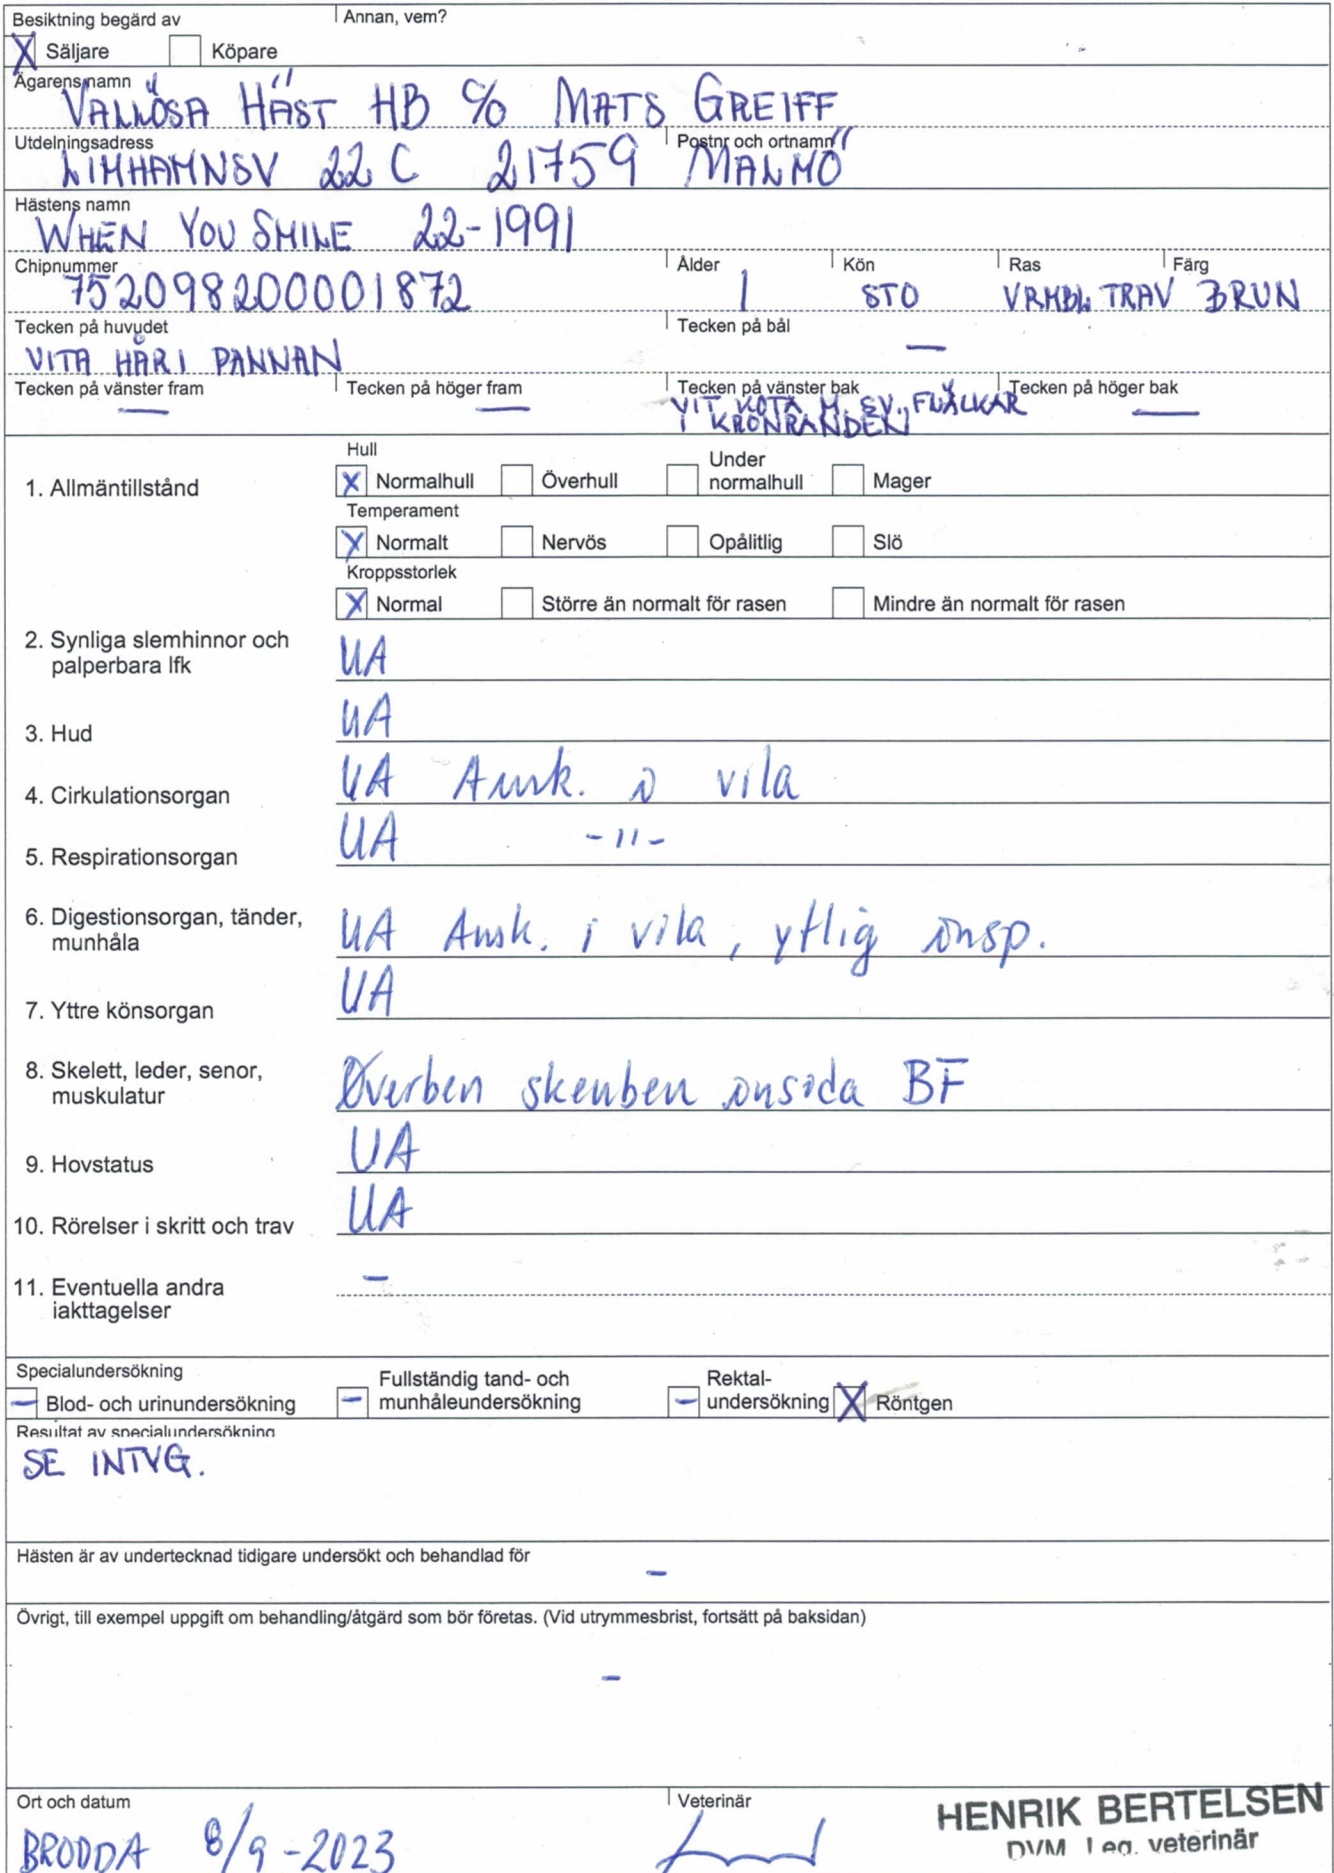 Besiktning begärd av Annan, vem?
X Säljare Köpare
Ägarens namn
VALLÖSA HÄST HB c/o MATS GREIFF
Utdelningsadress Postnr och ortnamn
LIMHAMNSV 22 C 21759 MALMÖ
Hästens namn
WHEN YOU SMILE 22-1991
Chipnummer Ålder Kön Ras Färg
752098200001872 1 STO VRMBL. TRAV BRUN
Tecken på huvudet Tecken på bål
VITA HÅR I PANNAN —
Tecken på vänster fram Tecken på höger fram Tecken på vänster bak Tecken på höger bak
— — VIT KOTA M. SV. FLÄCKAR —
I KRONRANDEN
Hull
1. Allmäntillstånd X Normalhull Överhull Under normalhull Mager
Temperament
X Normalt Nervös Opålitlig Slö
Kroppsstorlek
X Normal Större än normalt för rasen Mindre än normalt för rasen
2. Synliga slemhinnor och
palperbara lfk UA
3. Hud UA
4. Cirkulationsorgan UA Ausk. i vila
5. Respirationsorgan UA -11-
6. Digestionsorgan, tänder,
munhåla UA Ausk. i vila, ytlig insp.
7. Yttre könsorgan UA
8. Skelett, leder, senor,
muskulatur Överben skenben insida BF
9. Hovstatus UA
10. Rörelser i skritt och trav UA
11. Eventuella andra —
iakttagelser
Specialundersökning Fullständig tand- och Rektal-
— Blod- och urinundersökning — munhåleundersökning — undersökning X Röntgen
Resultat av specialundersökning
SE INTYG.
Hästen är av undertecknad tidigare undersökt och behandlad för
—
Övrigt, till exempel uppgift om behandling/åtgärd som bör företas. (Vid utrymmesbrist, fortsätt på baksidan)
—
Ort och datum Veterinär HENRIK BERTELSEN
BRODDA 8/9-2023 DVM Leg. veterinär